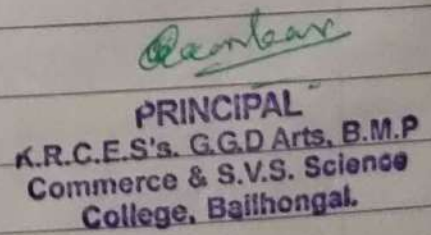 PRINCIPAL
K.R.C.E.S's. G.G.D Arts, B.M.P
Commerce & S.V.S. Science
College, Bailhongal.